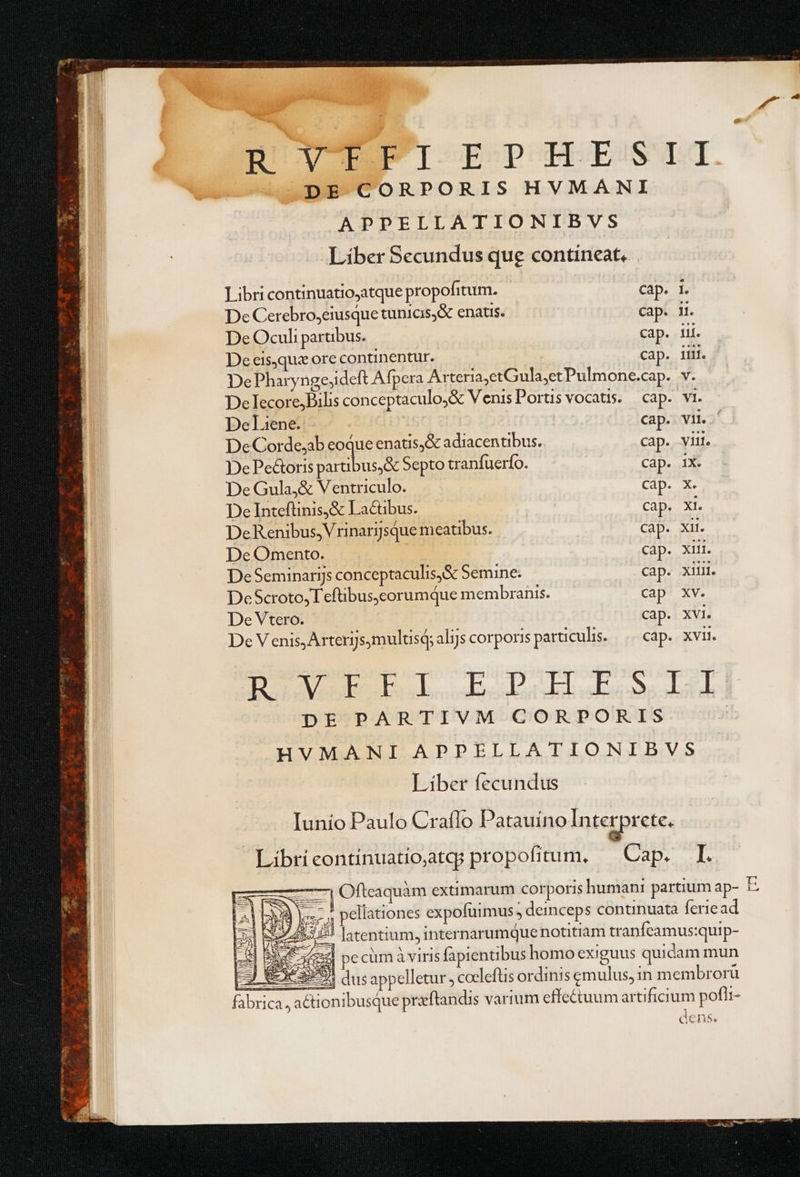 RVFFI EPHESII
DE CORPORIS HVMANI
APPELLATIONIBVS
Liber Secundus quę contineat.
Libri continuatio,atque propoſitum. cap. i.
De Cerebro,eiusque tunicis,& enatis. cap. ii.
De Oculi partibus. cap. iii.
De eis,quæ ore continentur. cap. iiii.
De Pharynge,ideſt Aſpera Arteria,etGula,et Pulmone.cap. v.
De Iecore,Bilis conceptaculo,& Venis Portis vocatis. cap. vi.
De Liene. cap. vii.
De Corde,ab eoque enatis,& adiacentibus. cap. viii.
De Pectoris partibus,& Septo tranſuerſo. cap. ix.
De Gula,& Ventriculo. cap. x.
De Inteſtinis,& Lactibus. cap. xi.
De Renibus,Vrinarijsque meatibus. cap. xii.
De Omento. cap. xiii.
De Seminarijs conceptaculis,& Semine. cap. xiiii.
De Scroto,Teſtibus,eorumque membranis. cap xv.
De Vtero. cap. xvi.
De Venis,Arterijs,multisq; alijs corporis particulis. cap. xvii.
RVFFI EPHESII
DE PARTIVM CORPORIS
HVMANI APPELLATIONIBVS
Liber ſecundus
Iunio Paulo Craſſo Patauino Interprete.
Libri continuatio,atq; propoſitum. Cap. I.
POſteaquàm extimarum corporis humani partium ap- E
pellationes expoſuimus, deinceps continuata ſerie ad
latentium, internarumque notitiam tranſeamus:quip-
pe cùm à viris ſapientibus homo exiguus quidam mun
dus appelletur, cœleſtis ordinis ęmulus, in membrorū
fabrica, actionibusque præſtandis varium effectuum artificium poſſi-
dens.